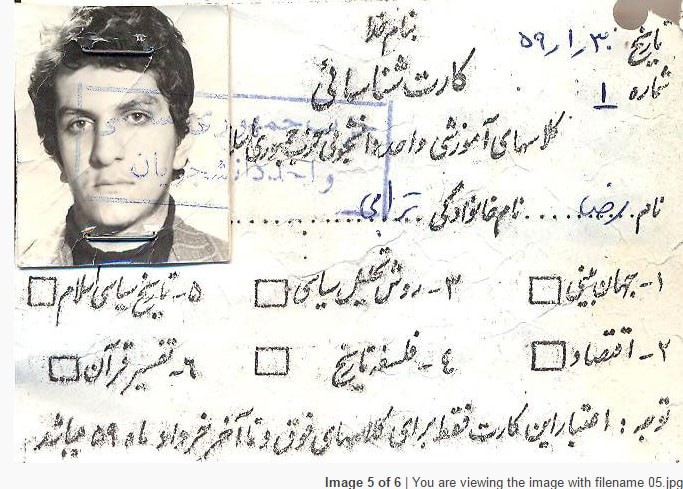 بنام خدا
تاریخ ۳۰ر۱ر۵۹
کارت شناسائی
شماره ۱
کلاسهای آموزشی واحد دانشجوئی حزب جمهوری اسلا
جمهوری
واحد دانشجویان
نام رضا نام خانوادگی ترابی
۱- جهان بینی
۳- روش تحلیل سیاسی
۵- تاریخ سیاسی اسلام
۲- اقتصاد
٤- فلسفه تاریخ
۶- تفسیر قرآن
توجه : اعتبار این کارت فقط برای کلاسهای فوق و تا آخر خرداد ماه ۵۹ میباشد
Image 5 of 6 | You are viewing the image with filename 05.jpg